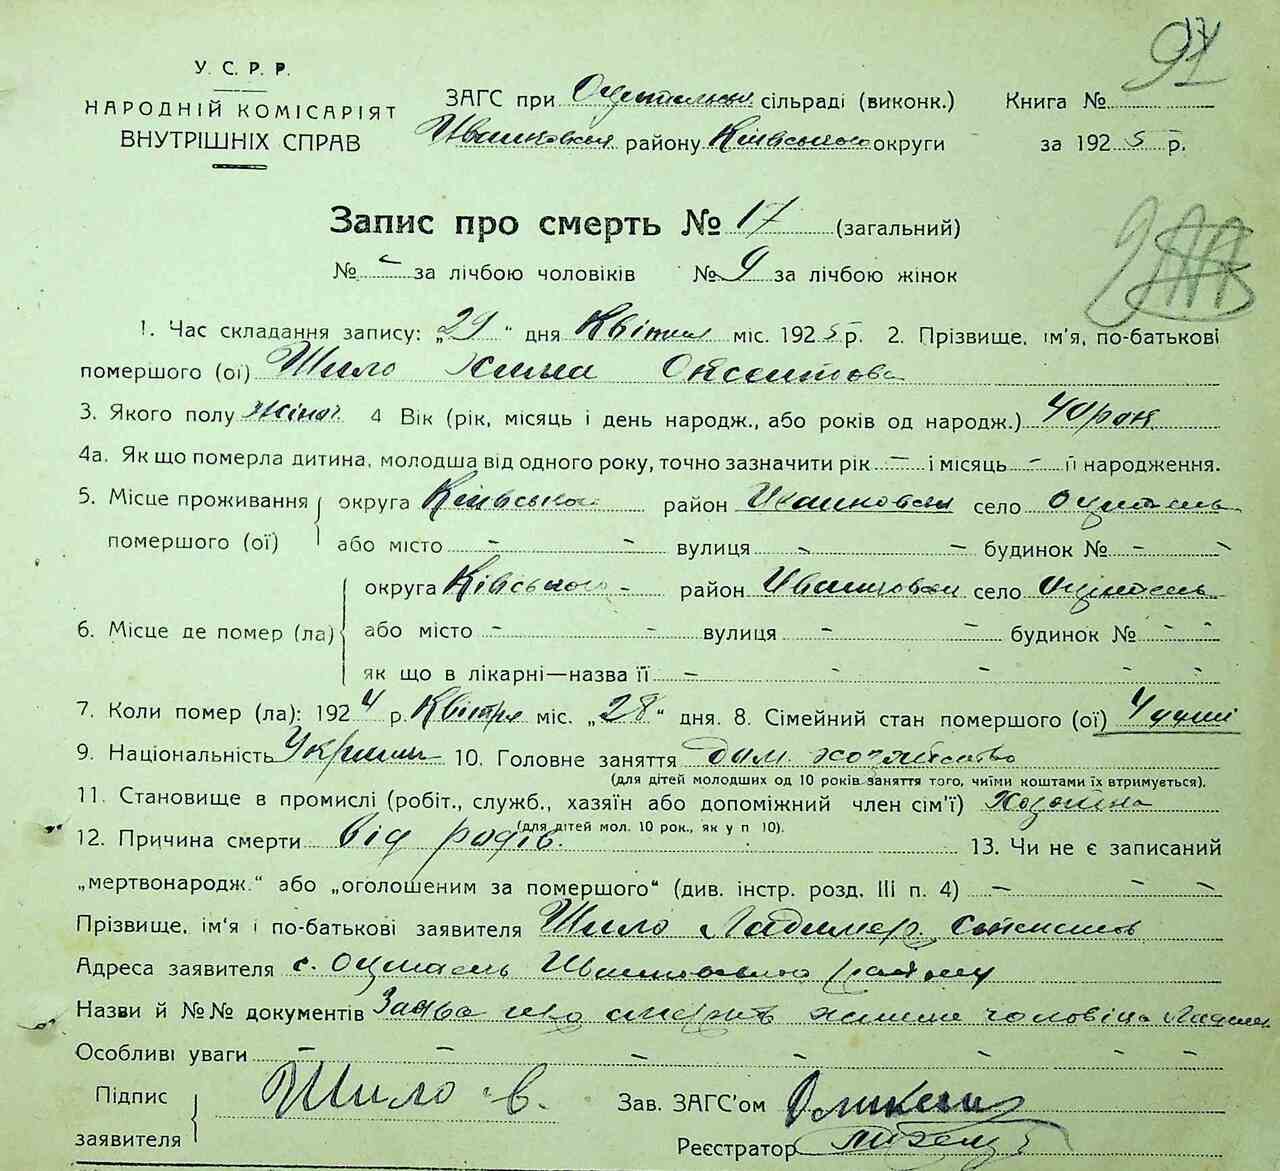 97
У. С. Р. Р.
НАРОДНІЙ КОМІСАРІЯТ
ВНУТРІШНІХ СПРАВ
ЗАГС при сільраді (виконк.) Книга №
району Київського округи за 1925 р.
Запис про смерть № 17 (загальний)
№ за лічбою чоловіків № 9 за лічбою жінок
1. Час складання запису: „29“ дня Квітня міс. 1925 р. 2. Прізвище, ім'я, по-батькові
помершого (ої) Шило
3. Якого полу жіноч 4 Вік (рік, місяць і день народж., або років од народж.) 40 рок
4а. Як що померла дитина, молодша від одного року, точно зазначити рік – і місяць – її народження.
5. Місце проживання округа Київського район село
помершого (ої) або місто – – вулиця – – будинок № – –
округа Ківського – район село
6. Місце де помер (ла) або місто – – вулиця – – будинок № – –
як що в лікарні—назва її – – – – –
7. Коли помер (ла): 1924 р. Квітня міс. „28“ дня. 8. Сімейний стан помершого (ої)
9. Національність 10. Головне заняття дом. хозяйство
(для дітей молодших од 10 років заняття того, чиїми коштами їх втримується).
11. Становище в промислі (робіт., служб., хазяїн або допоміжний член сім'ї)
(для дітей мол. 10 рок., як у п 10).
12. Причина смерти від родів. 13. Чи не є записаний
„мертвонародж.“ або „оголошеним за помершого“ (див. інстр. розд. III п. 4) – – –
Прізвище, ім'я і по-батькові заявителя Шило Ладимер
Адреса заявителя с. району
Назви й №№ документів Заява про смерть
Особливі уваги – – – – – –
Підпис Шило В. Зав. ЗАГС'ом
заявителя
Реєстратор